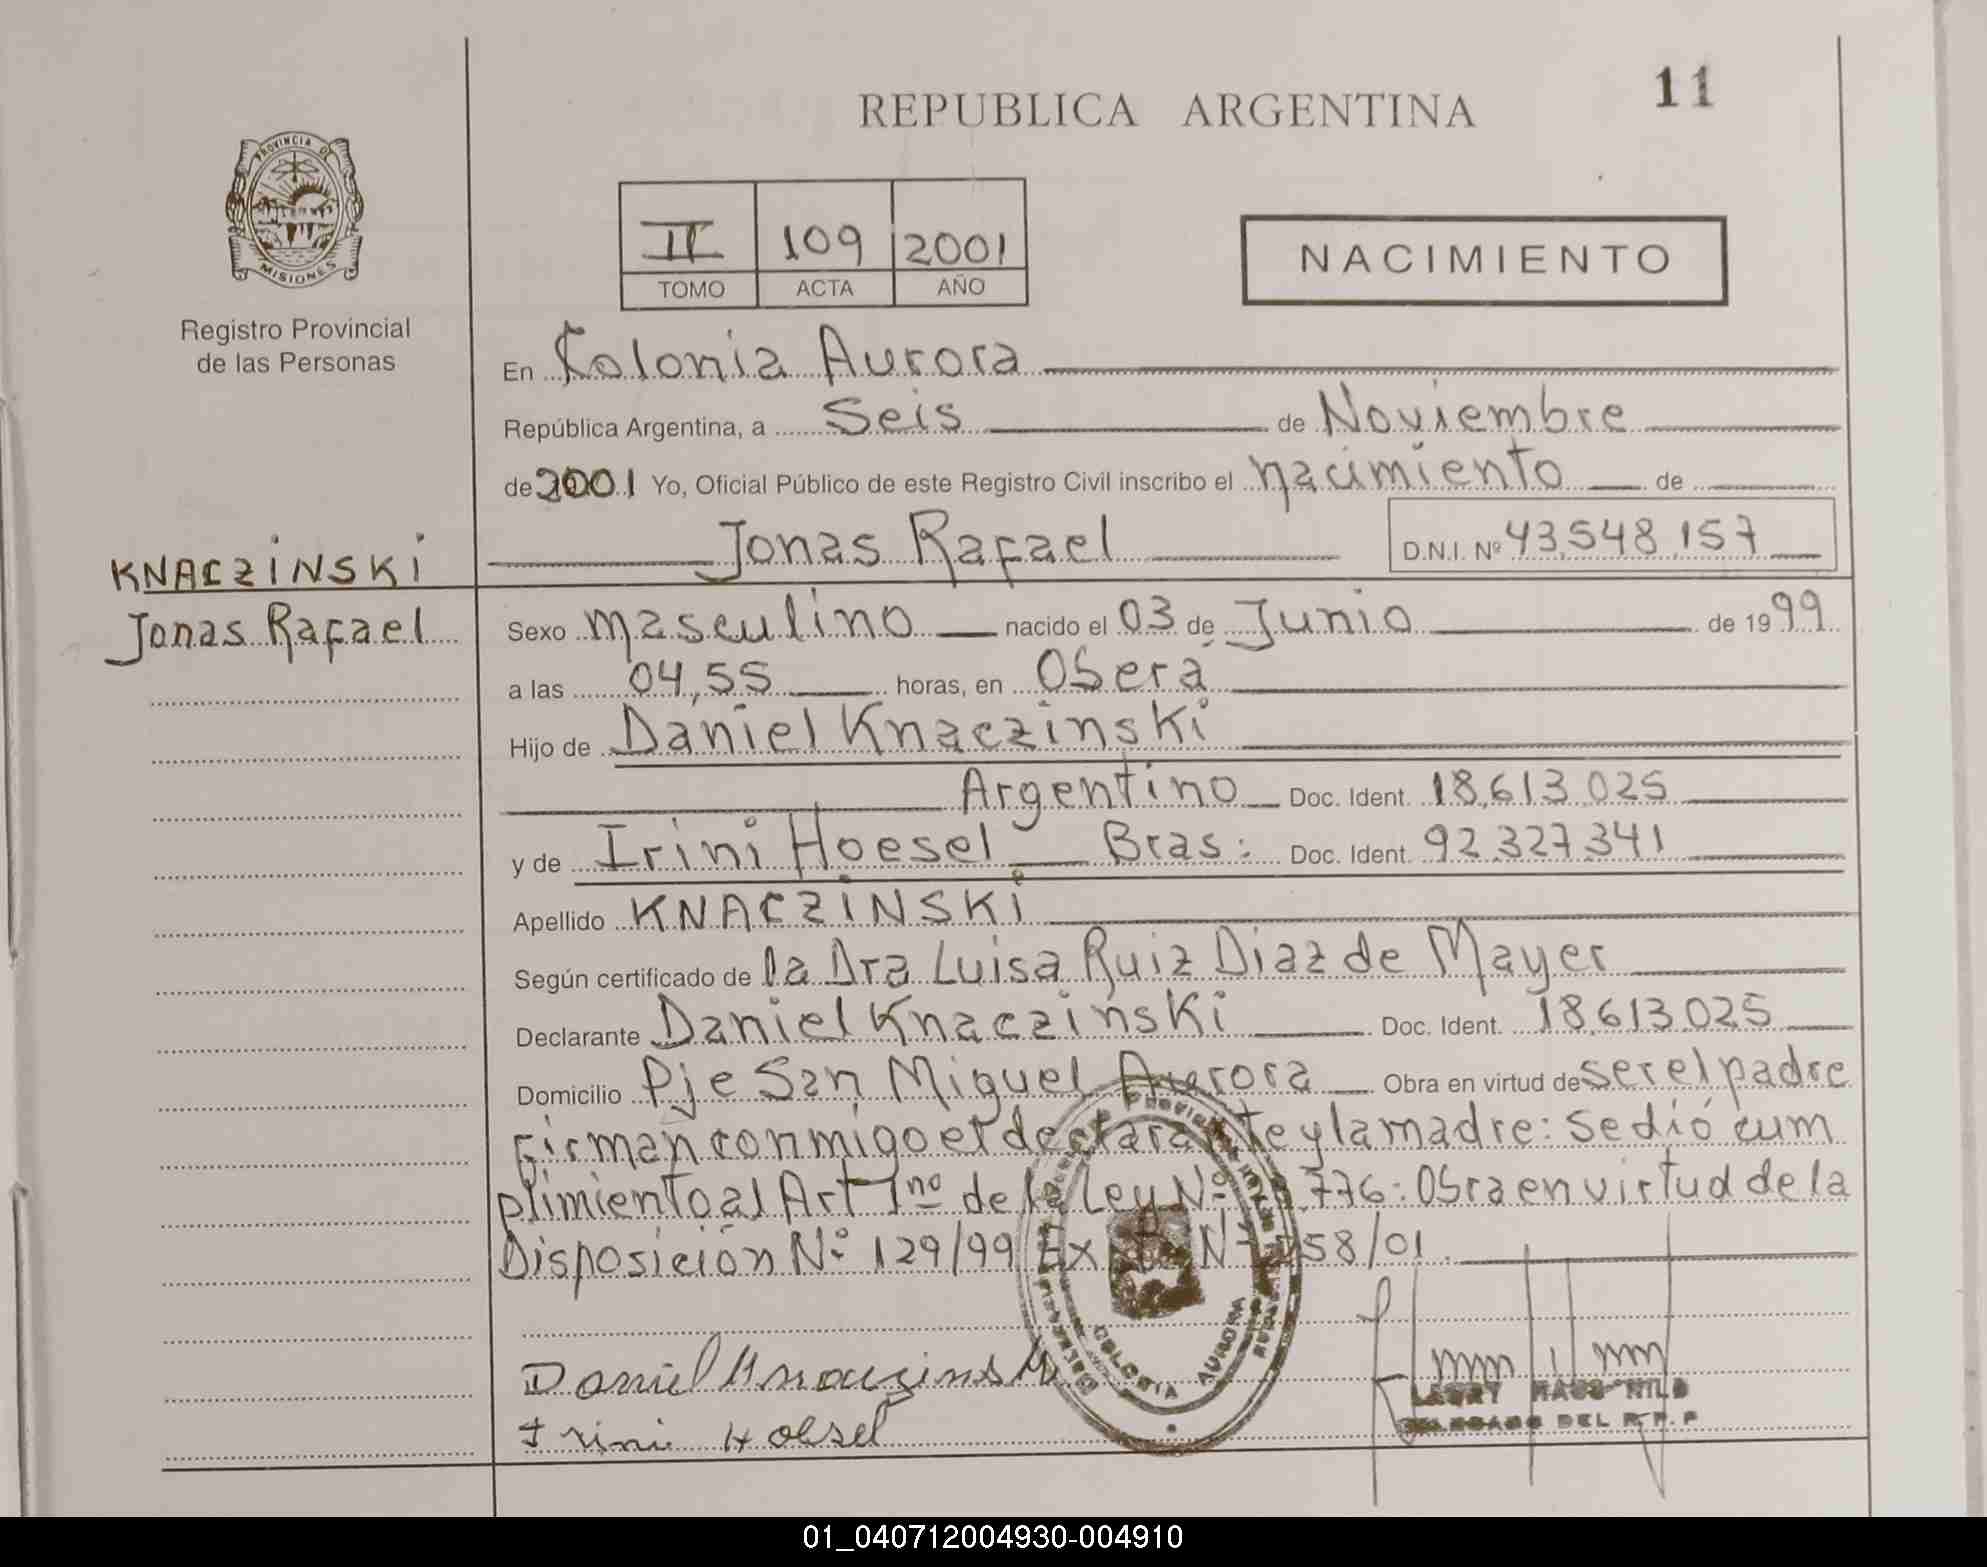 REPUBLICA ARGENTINA
11
PROVINCIA DE
MISIONES
Registro Provincial
de las Personas
II 109 2001
TOMO ACTA AÑO
NACIMIENTO
En Kolonia Aurora
República Argentina, a Seis de Noviembre
de 2001 Yo, Oficial Público de este Registro Civil inscribo el nacimiento de
Jonas Rafael D.N.I. Nº 43,548,157
KNACZINSKI
Jonas Rafael
Sexo masculino nacido el 03 de Junio de 1999
a las 04,55 horas, en Oberá
Hijo de Daniel Knaczinski
Argentino Doc. Ident. 18,613,025
y de Irini Hoesel Bras: Doc. Ident. 92.327.341
Apellido KNACZINSKI
Según certificado de la Dra Luisa Ruiz Diaz de Mayer
Declarante Daniel Knaczinski Doc. Ident. 18,613.025
Domicilio Pje San Miguel Aurora Obra en virtud de ser el padre
firman conmigo el declarante y la madre: se dió cum
plimiento al Art 1no de la Ley Nº 776: Obra en virtud de la
Disposición Nº 129/99 N 58/01.
Daniel Knaczinski
Irini Hoesel
COLONIA AURORA
DELEGADO DEL R.P.P
01_040712004930-004910